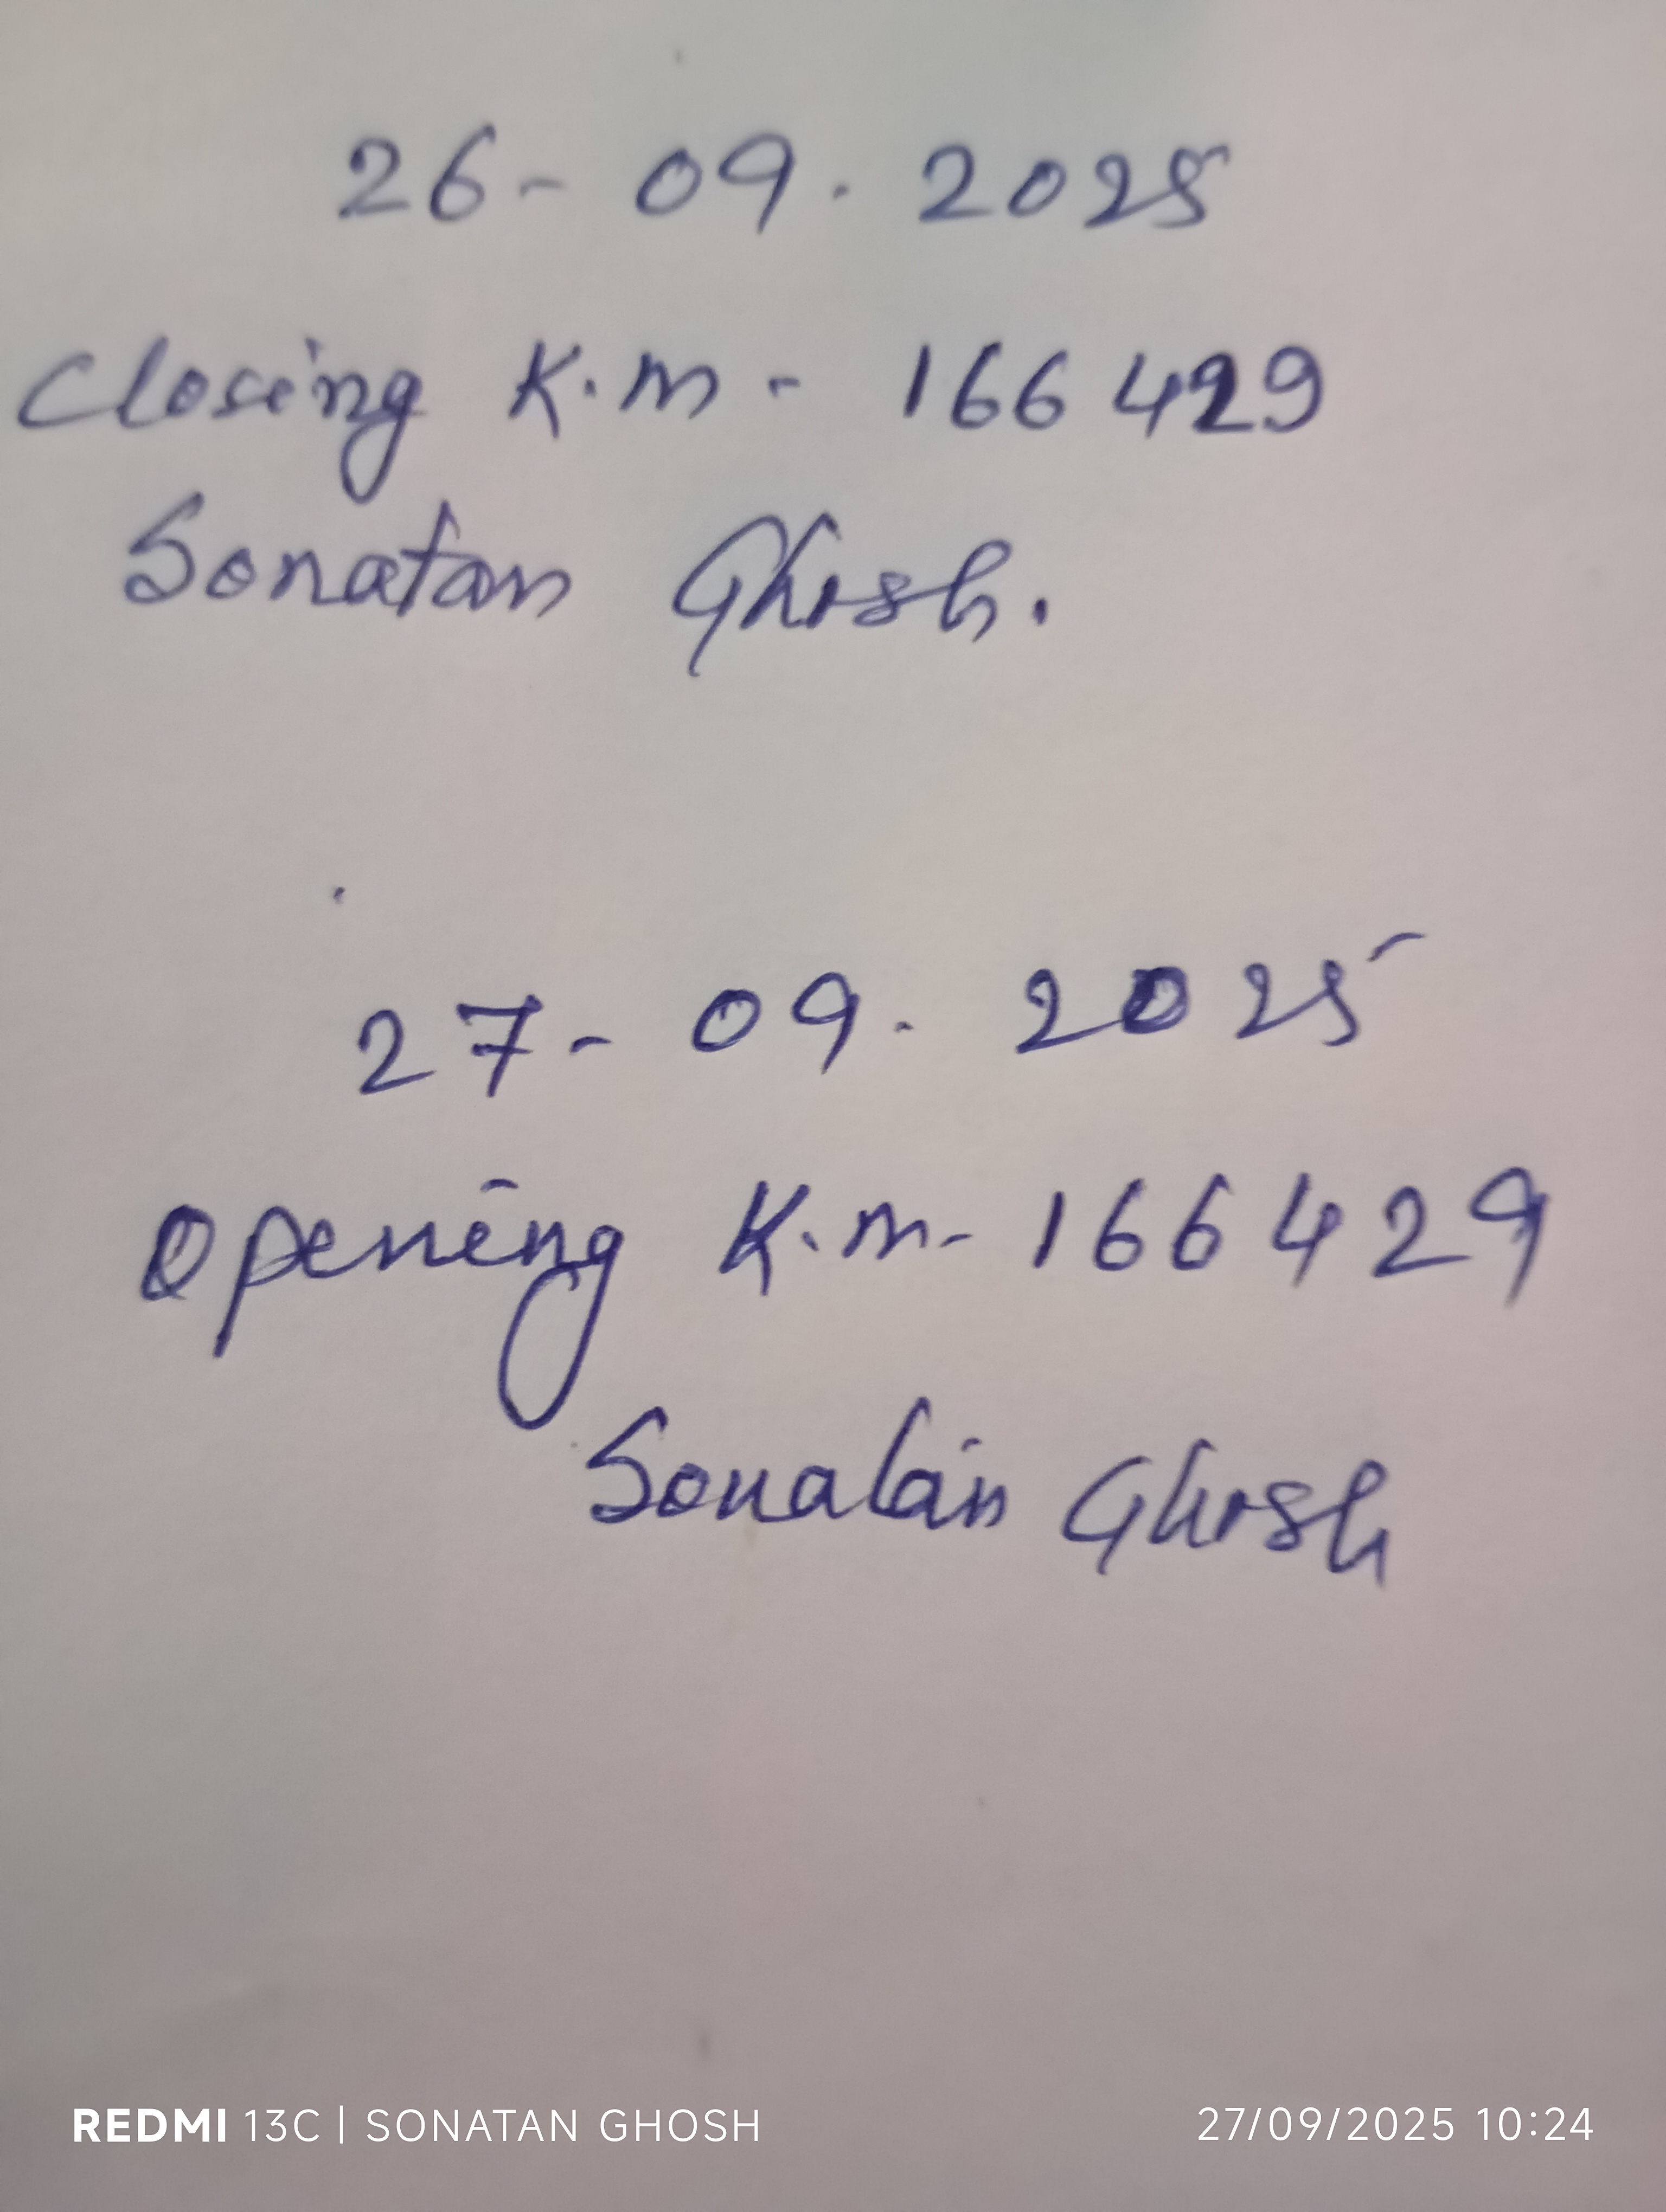 26- 09. 2025
Closing K.m - 166429
Sonatan Ghosh.
27- 09. 2025
Opening K.m- 166429
Sonatan Ghosh
REDMI 13C | SONATAN GHOSH 27/09/2025 10:24